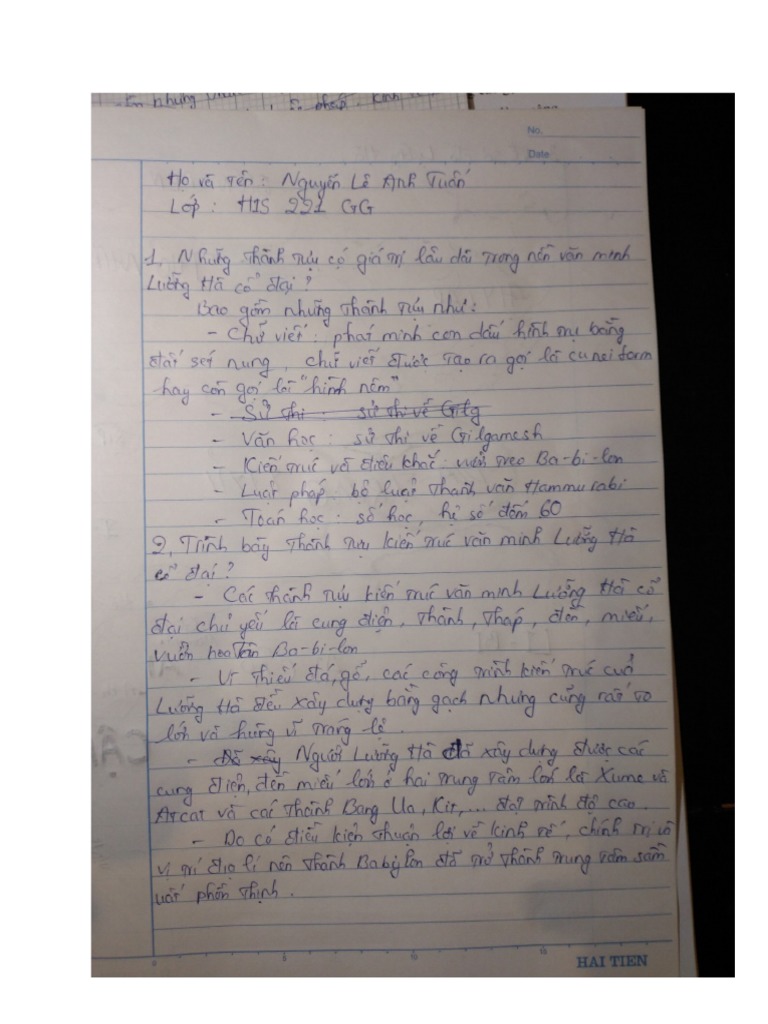 No.
Date
Họ và tên : Nguyễn Lê Anh Tuấn
Lớp : HIS 221 GG
1, Những thành tựu có giá trị lâu dài trong nền văn minh
Lưỡng Hà cổ đại ?
Bao gồm những thành tựu như :
- Chữ viết : phát minh con dấu hình trụ bằng
đất sét nung, chữ viết được tạo ra gọi là cuneiform
hay còn gọi là "hình nêm"
- Sử thi : sử thi về Gilg
- Văn học : sử thi về Gilgamesh
- Kiến trúc và điêu khắc : vườn treo Ba-bi-lon
- Luật pháp : bộ luật thành văn Hammurabi
- Toán học : số học, hệ số đếm 60
2, Trình bày thành tựu kiến trúc văn minh Lưỡng Hà
cổ đại ?
- Các thành tựu kiến trúc văn minh Lưỡng Hà cổ
đại chủ yếu là cung điện, thành, tháp, đền, miếu,
vườn Ba-bi-lon
- Vì thiếu đá, gỗ, các công trình kiến trúc của
Lưỡng Hà đều xây dựng bằng gạch nhưng cũng rất to
lớn và hùng vĩ tráng lệ .
- Đã xây Người Lưỡng Hà đã xây dựng được các
cung điện, đền miếu lớn ở hai trung tâm lớn là Xume và
Arcat và các thành Bang Ua, Kit, ... đạt trình độ cao .
- Do có điều kiện thuận lợi về kinh tế, chính trị và
vị trí địa lí nên thành Babylon đã trở thành trung tâm sầm
uất phồn thịnh .
0 5 10 15
HAI TIEN